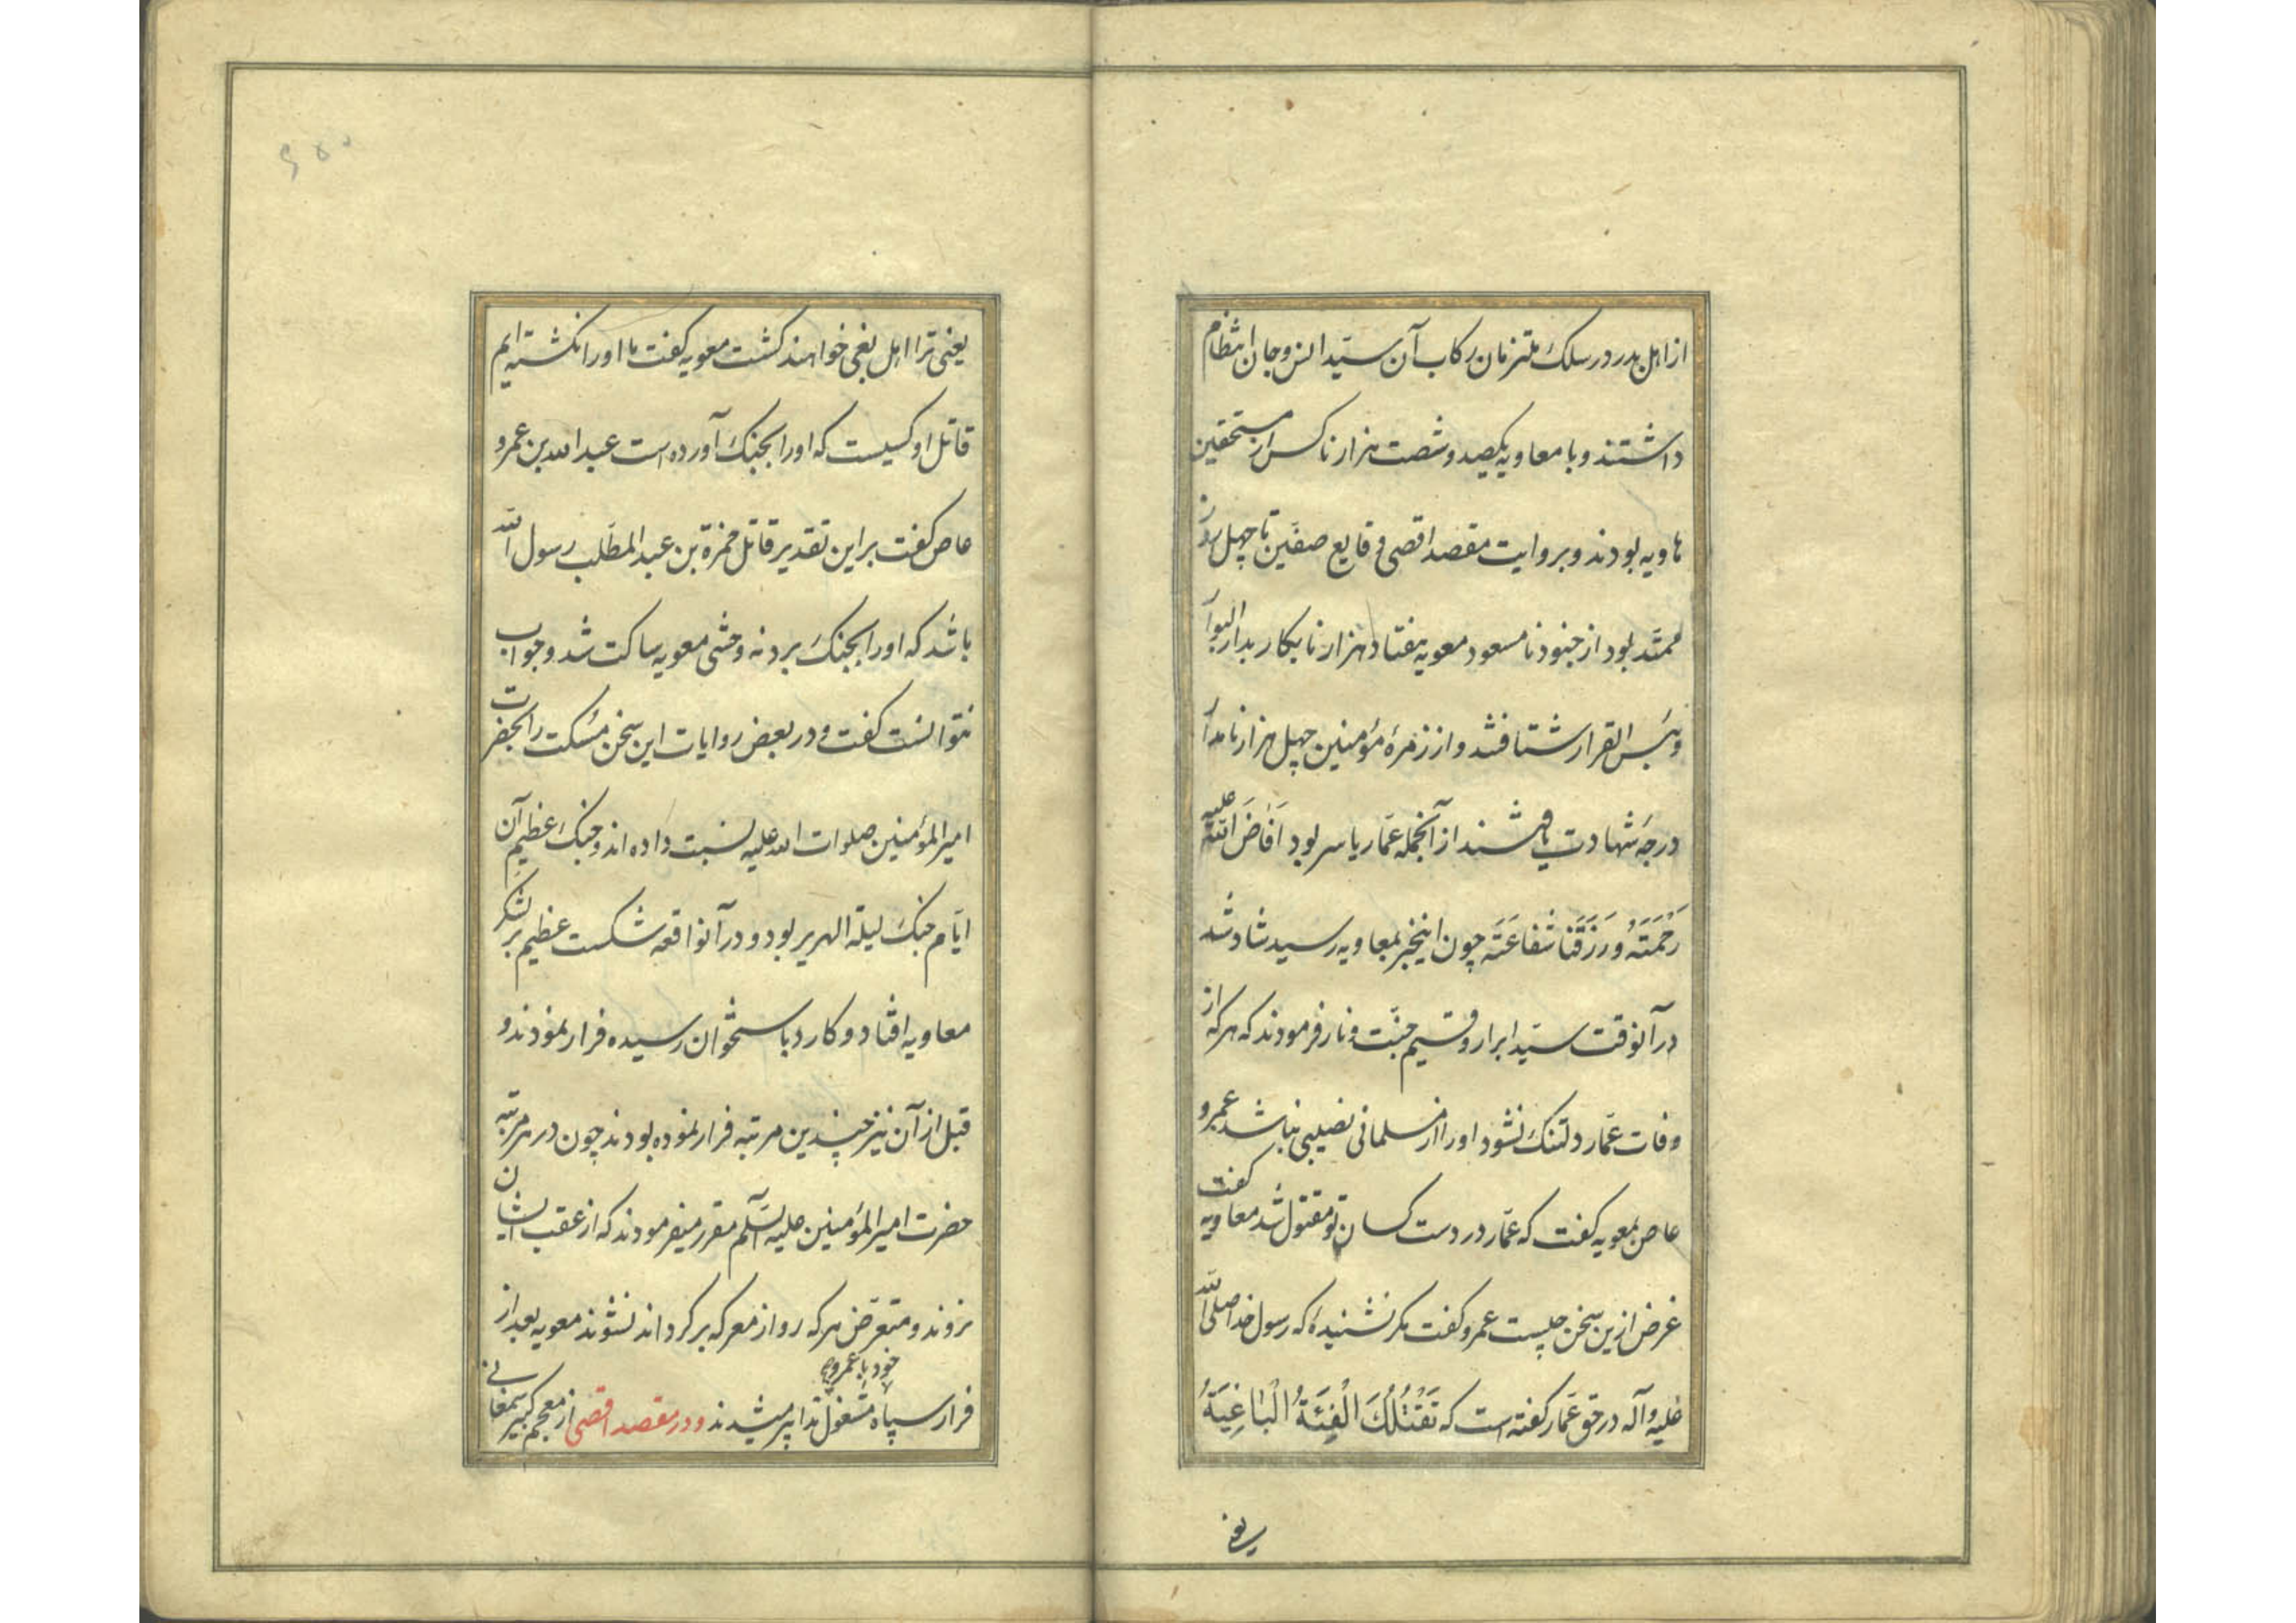 از اهل بدر در سلک ملتزمان رکاب آن سیّد انس و جان انتظام
داشتند و با معاویه یکصد و شصت هزار ناکس از مستحقین
هاویه بودند و بروایت مقصد اقصی وقایع صفّین تا چهل روز
ممتد بود از جنود نامسعود معویه هفتاد هزار نابکار بدار البوار
و بئس القرار شتافتند و از زمرهٔ مؤمنین چهل هزار نامدار
درجهٔ شهادت یافتند از آنجمله عمّار یاسر بود اَفَاضَ اللّه علیه
رَحْمَتَهُ وَرَزَقَنَا شَفَاعَتَه چون اینخبر بمعاویه رسید شاد شد
در آنوقت سیّد ابرار و قسیم جنّت و نار فرمودند که هر که از
وفات عمّار دلتنک نشود او را از مسلمانی نصیبی نباشد عمرو
عاص بمعویه کفت که عمّار در دست کسان تو مقتول شد معاویه کفت
غرض ازین سخن چیست عمرو کفت مکر نشنیدهٔ که رسول خدا صلی اللّه
علیه و آله در حق عمّار کفته است که تَقْتُلُکَ الْفِئَةُ الْبَاغِیَةُ
یعنی
یعنی ترا اهل بغی خواهند کشت معویه کفت ما او را نکشته ایم
قاتل او کسیست که او را بجنک آورده است عبد الله بن عمرو
عاص کفت بر این تقدیر قاتل حمزة بن عبد المطّلب رسول اللّه
باشد که او را بجنک برد نه وحشی معویه ساکت شد و جواب
نتوانست کفت و در بعض روایات این سخن مُسکت را بحضرت
امیر المؤمنین صلوات الله علیه نسبت داده اند و جنک عظیم آن
ایّام جنک لیلة الهریر بود و در آنواقعه شکست عظیم بر لشکر
معاویه افتاد و کارد باستخوان رسیده فرار نمودند و
قبل از آن نیز چندین مرتبه فرار نموده بودند چون در هر مرتبه
حضرت امیر المؤمنین علیه السّلم مقرر میفرمودند که از عقب ایشان
نروند و متعرّض هر که رو از معرکه برکرداند نشوند معویه بعد از
فرار سپاه خود با عمرو مشغول تدابیر میشدند و در مقصد اقصی از معجم کبیر سمعانی